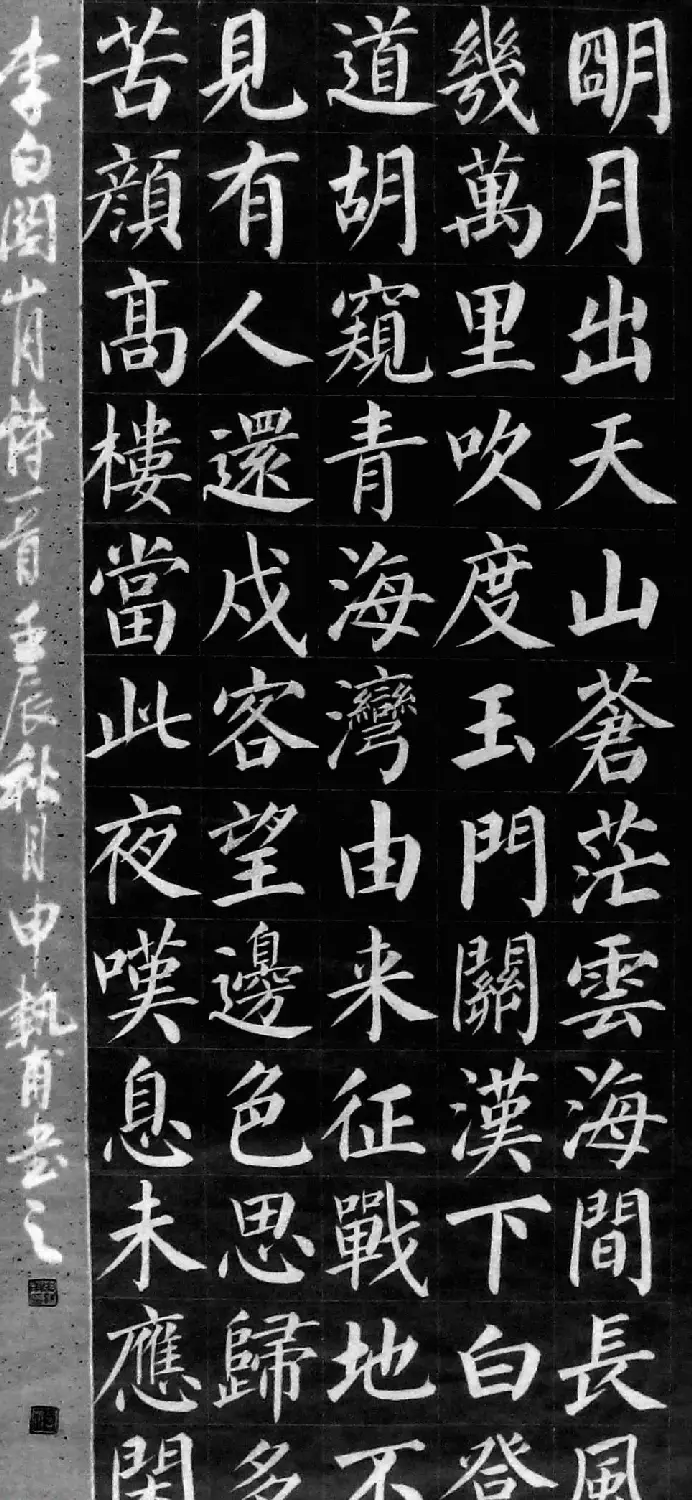 明月出天山蒼茫雲海間長風
幾萬里吹度玉門關漢下白登
道胡窺青海灣由来征戰地不
見有人還戍客望邊色思歸多
苦顏高樓當此夜嘆息未應閑
李白關山月詩一首壬辰秋月申執甫書之